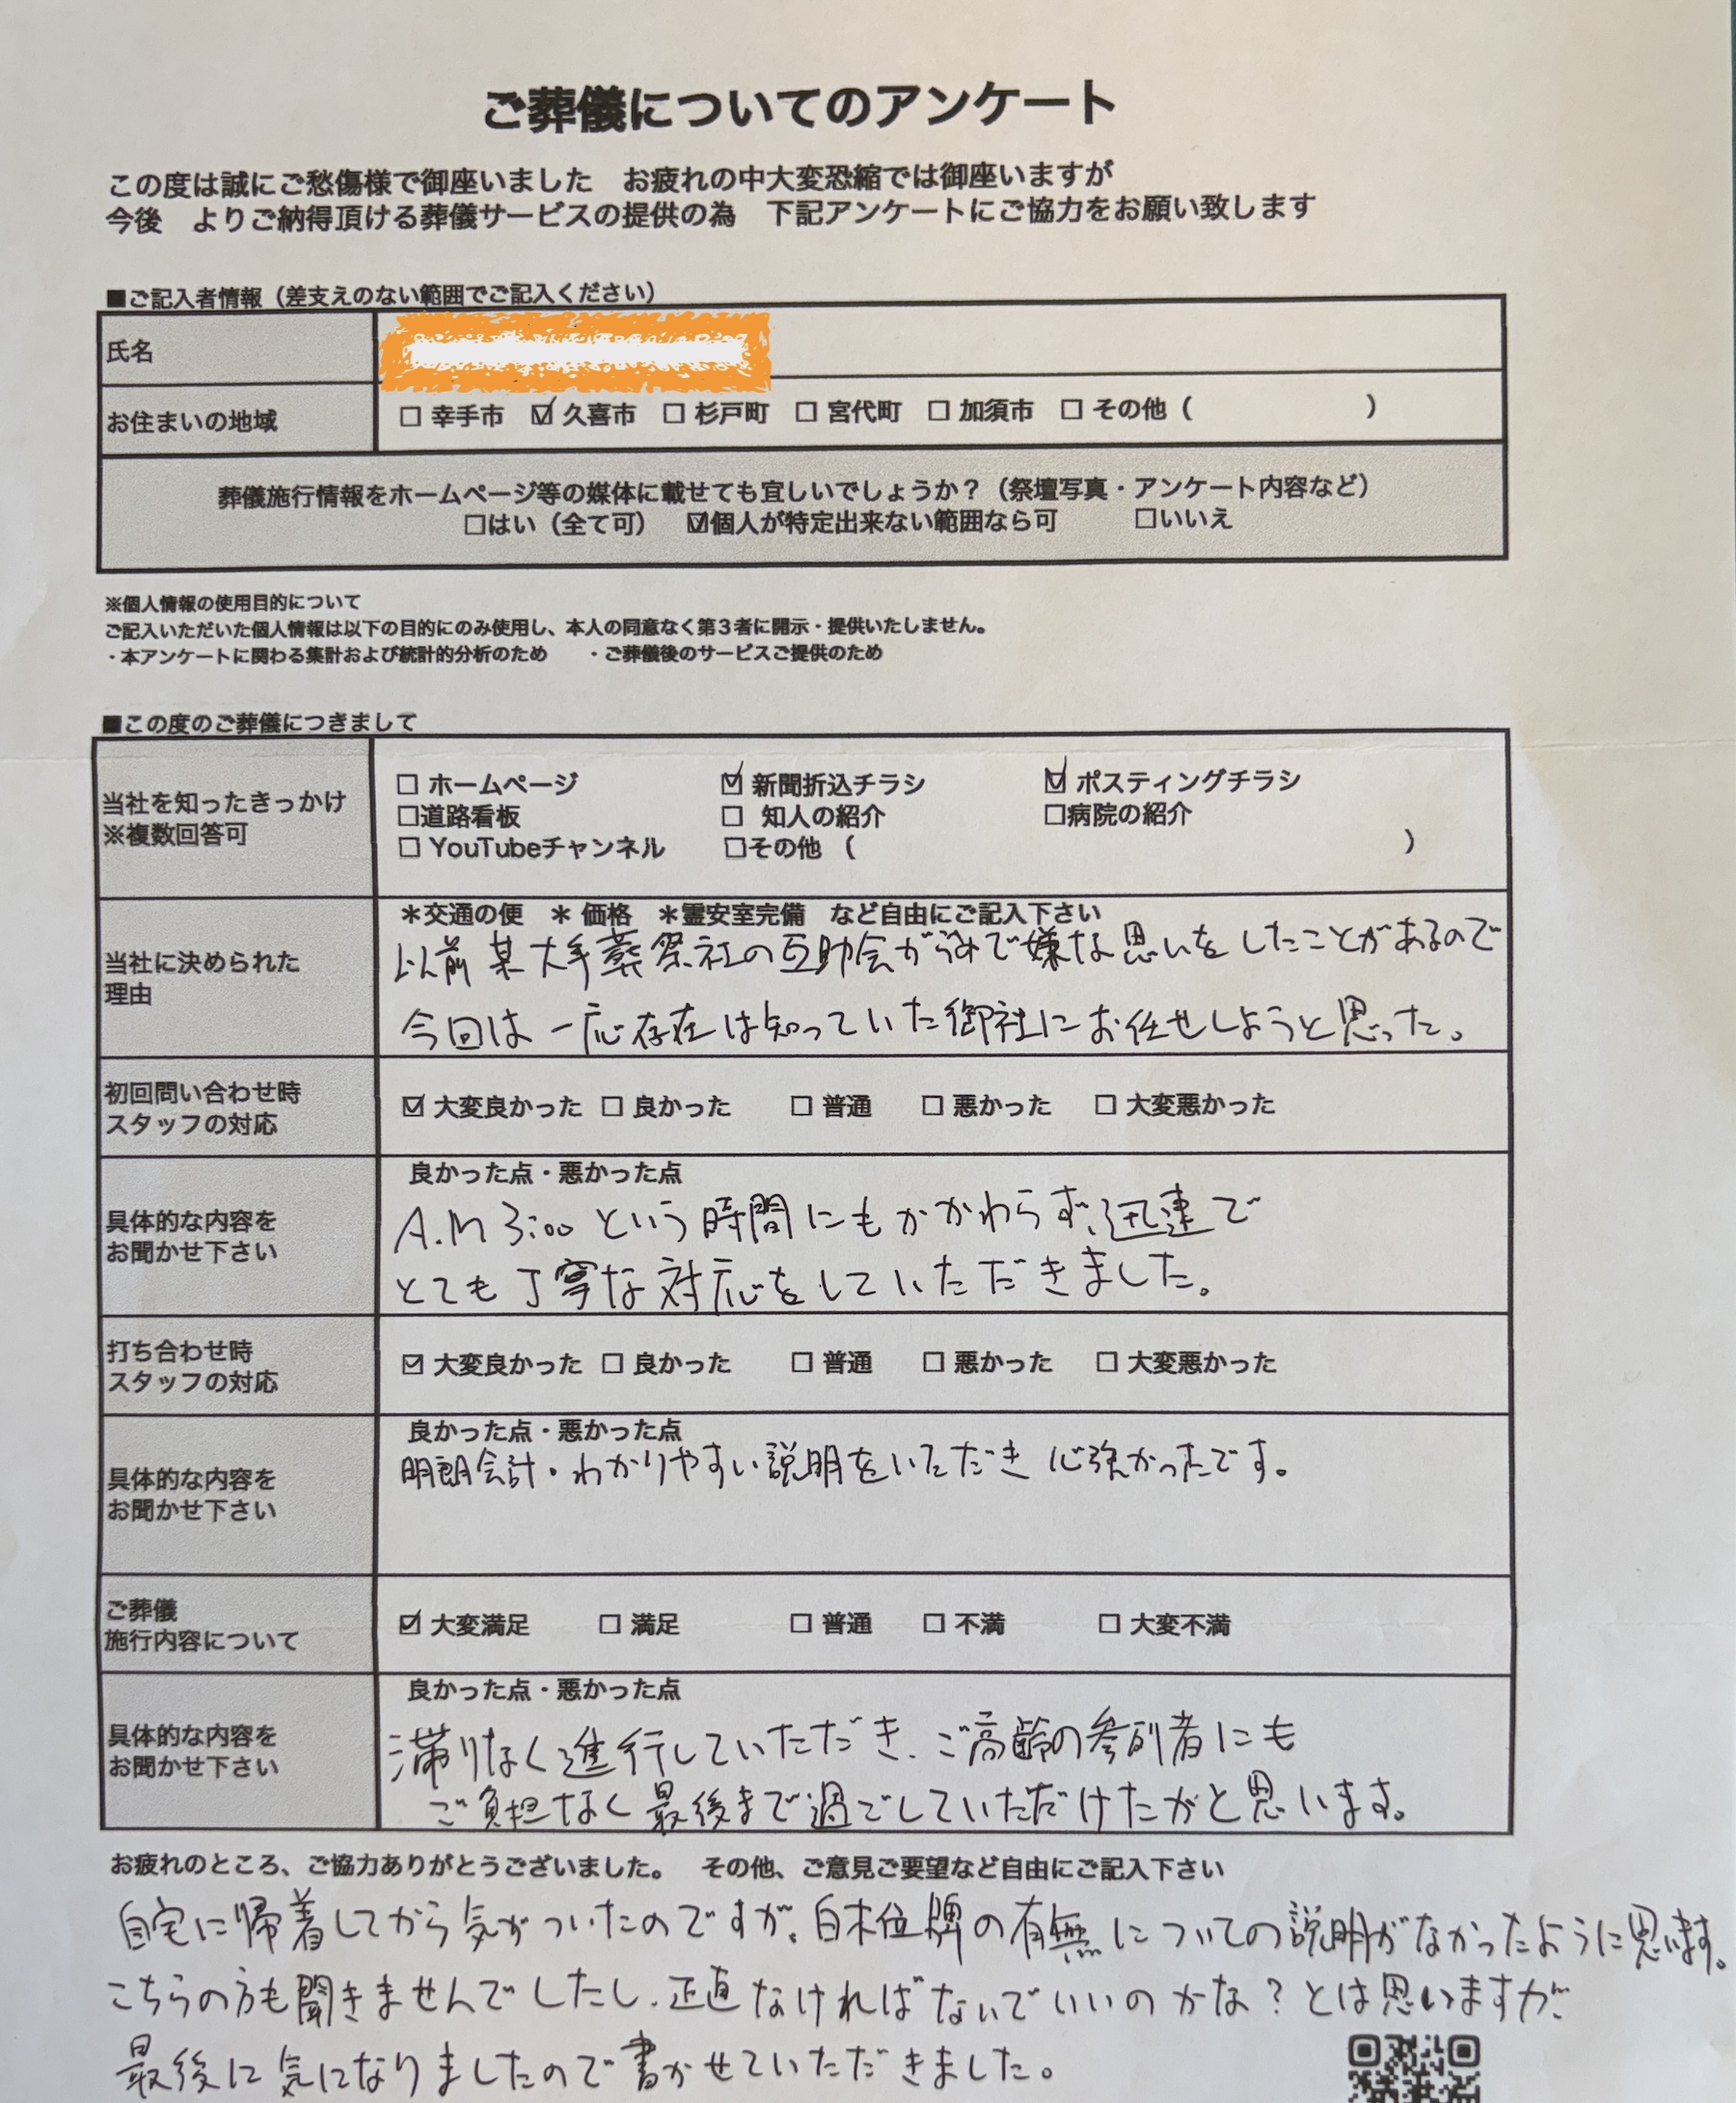 ご葬儀についてのアンケート
この度は誠にご愁傷様で御座いました　お疲れの中大変恐縮では御座いますが
今後　よりご納得頂ける葬儀サービスの提供の為　下記アンケートにご協力をお願い致します
■ご記入者情報（差支えのない範囲でご記入ください）
氏名
お住まいの地域　□ 幸手市　☑ 久喜市　□ 杉戸町　□ 宮代町　□ 加須市　□ その他（　　　　　　）
葬儀施行情報をホームページ等の媒体に載せても宜しいでしょうか？（祭壇写真・アンケート内容など）
□はい（全て可）　☑個人が特定出来ない範囲なら可　　□いいえ
※個人情報の使用目的について
ご記入いただいた個人情報は以下の目的にのみ使用し、本人の同意なく第３者に開示・提供いたしません。
・本アンケートに関わる集計および統計的分析のため　　・ご葬儀後のサービスご提供のため
■この度のご葬儀につきまして
当社を知ったきっかけ
※複数回答可
□ ホームページ　☑ 新聞折込チラシ　☑ ポスティングチラシ
□道路看板　□ 知人の紹介　□病院の紹介
□ YouTubeチャンネル　□その他 （　　　　　　）
当社に決められた
理由
＊交通の便　＊ 価格　＊霊安室完備　など自由にご記入下さい
以前 某大手葬祭社の互助会がらみで嫌な思いをしたことがあるので
今回は 一応存在は知っていた御社にお任せしようと思った。
初回問い合わせ時
スタッフの対応
☑ 大変良かった □ 良かった　□ 普通　□ 悪かった　□ 大変悪かった
具体的な内容を
お聞かせ下さい
良かった点・悪かった点
A.M 3:00 という時間にもかかわらず、迅速で
とても丁寧な対応をしていただきました。
打ち合わせ時
スタッフの対応
☑ 大変良かった □ 良かった　□ 普通　□ 悪かった　□ 大変悪かった
具体的な内容を
お聞かせ下さい
良かった点・悪かった点
明朗会計・わかりやすい説明をいただき 心強かったです。
ご葬儀
施行内容について
☑ 大変満足　□ 満足　□ 普通　□ 不満　□ 大変不満
具体的な内容を
お聞かせ下さい
良かった点・悪かった点
滞りなく進行していただき、ご高齢の参列者にも
ご負担なく最後まで過ごしていただけたかと思います。
お疲れのところ、ご協力ありがとうございました。　その他、ご意見ご要望など自由にご記入下さい
自宅に帰着してから気がついたのですが、白木位牌の有無についての説明がなかったように思います。
こちらの方も聞きませんでしたし、正直なければないでいいのかな？とは思いますが、
最後に気になりましたので書かせていただきました。